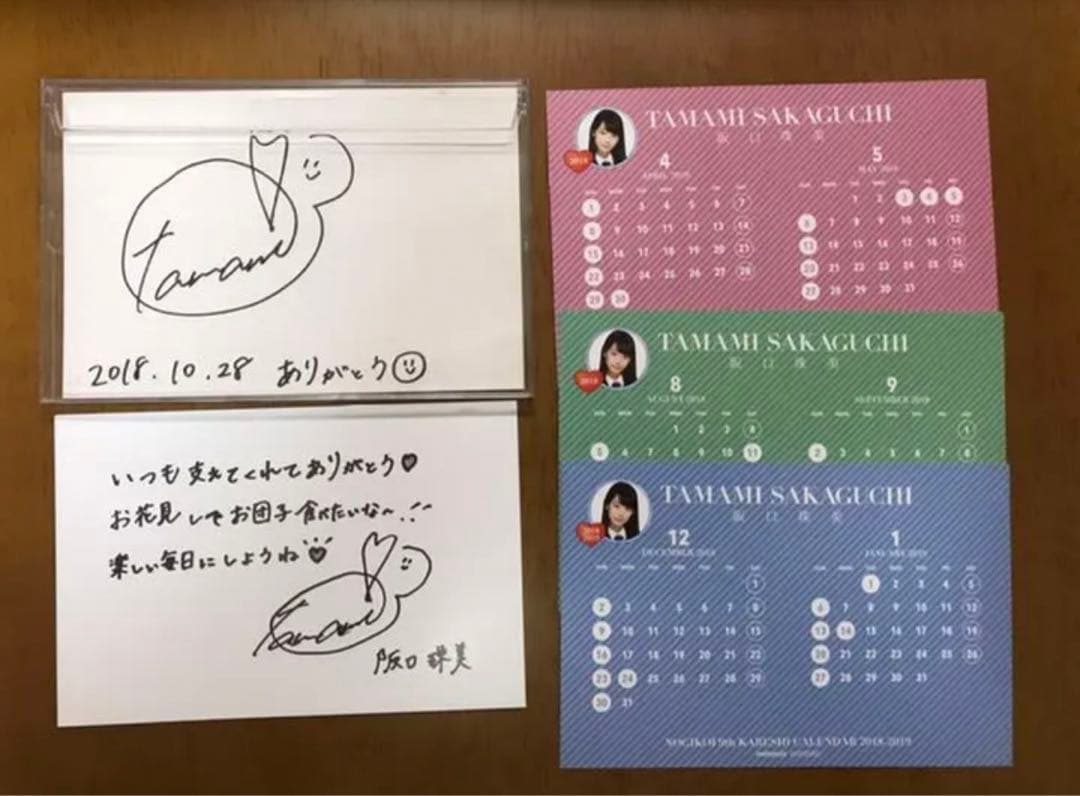 Tamami
2018.10.28 ありがとう
いつも支えてくれてありがとう
お花見してお団子食べたいな〜!!
楽しい毎日にしようね
Tamami
阪口珠美
TAMAMI SAKAGUCHI
阪口珠美
2018
4
APRIL 2018
1 2 3 4 5 6 7
8 9 10 11 12 13 14
15 16 17 18 19 20 21
22 23 24 25 26 27 28
29 30
5
MAY 2018
1 2 3 4 5
6 7 8 9 10 11 12
13 14 15 16 17 18 19
20 21 22 23 24 25 26
27 28 29 30 31
TAMAMI SAKAGUCHI
阪口珠美
2018
8
AUGUST 2018
1 2 3 4
5 6 7 8 9 10 11
9
SEPTEMBER 2018
1
2 3 4 5 6 7 8
TAMAMI SAKAGUCHI
阪口珠美
12
DECEMBER 2018
1
2 3 4 5 6 7 8
9 10 11 12 13 14 15
16 17 18 19 20 21 22
23 24 25 26 27 28 29
30 31
1
JANUARY 2019
1 2 3 4 5
6 7 8 9 10 11 12
13 14 15 16 17 18 19
20 21 22 23 24 25 26
27 28 29 30 31
NOGIKOI 9th KARESHI CALENDAR 2018-2019